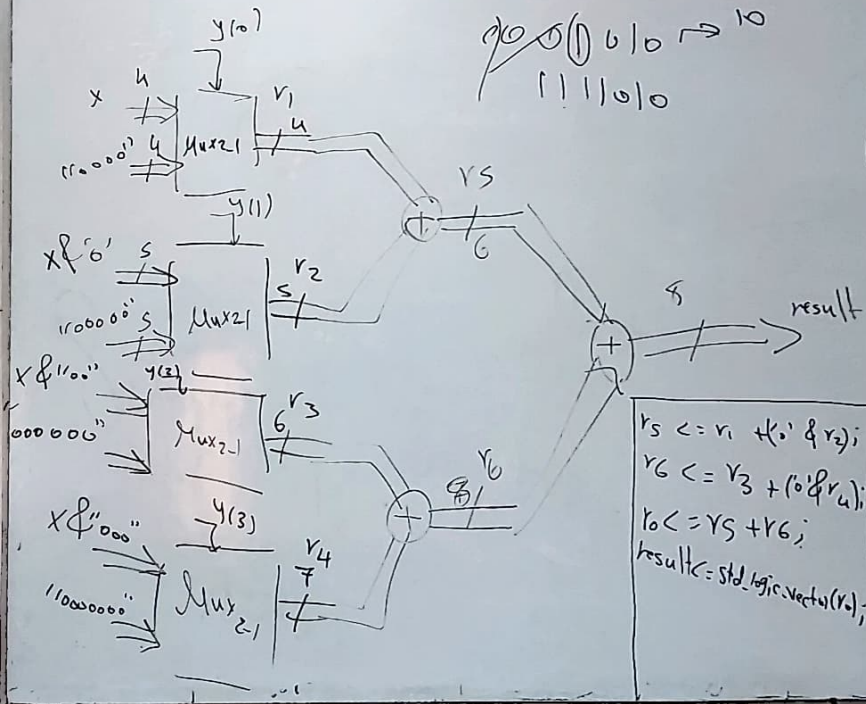 y(0)
x 4
"0000" 4
Mux2-1
r1
4
y(1)
x&'0' 5
"00000" 5
Mux21
r2
5
r5
6
x&"00"
000000"
y(3)
Mux2-1
r3
6
x&"000"
"0000000"
y(3)
Mux
2-1
r4
7
r6
8
+
+
+
8
result
→ 10
1111010
r5 <= r1 +('0' & r2);
r6 <= r3 + ('0' & r4);
r0 <= r5 + r6;
result <= std_logic_vector(r0);